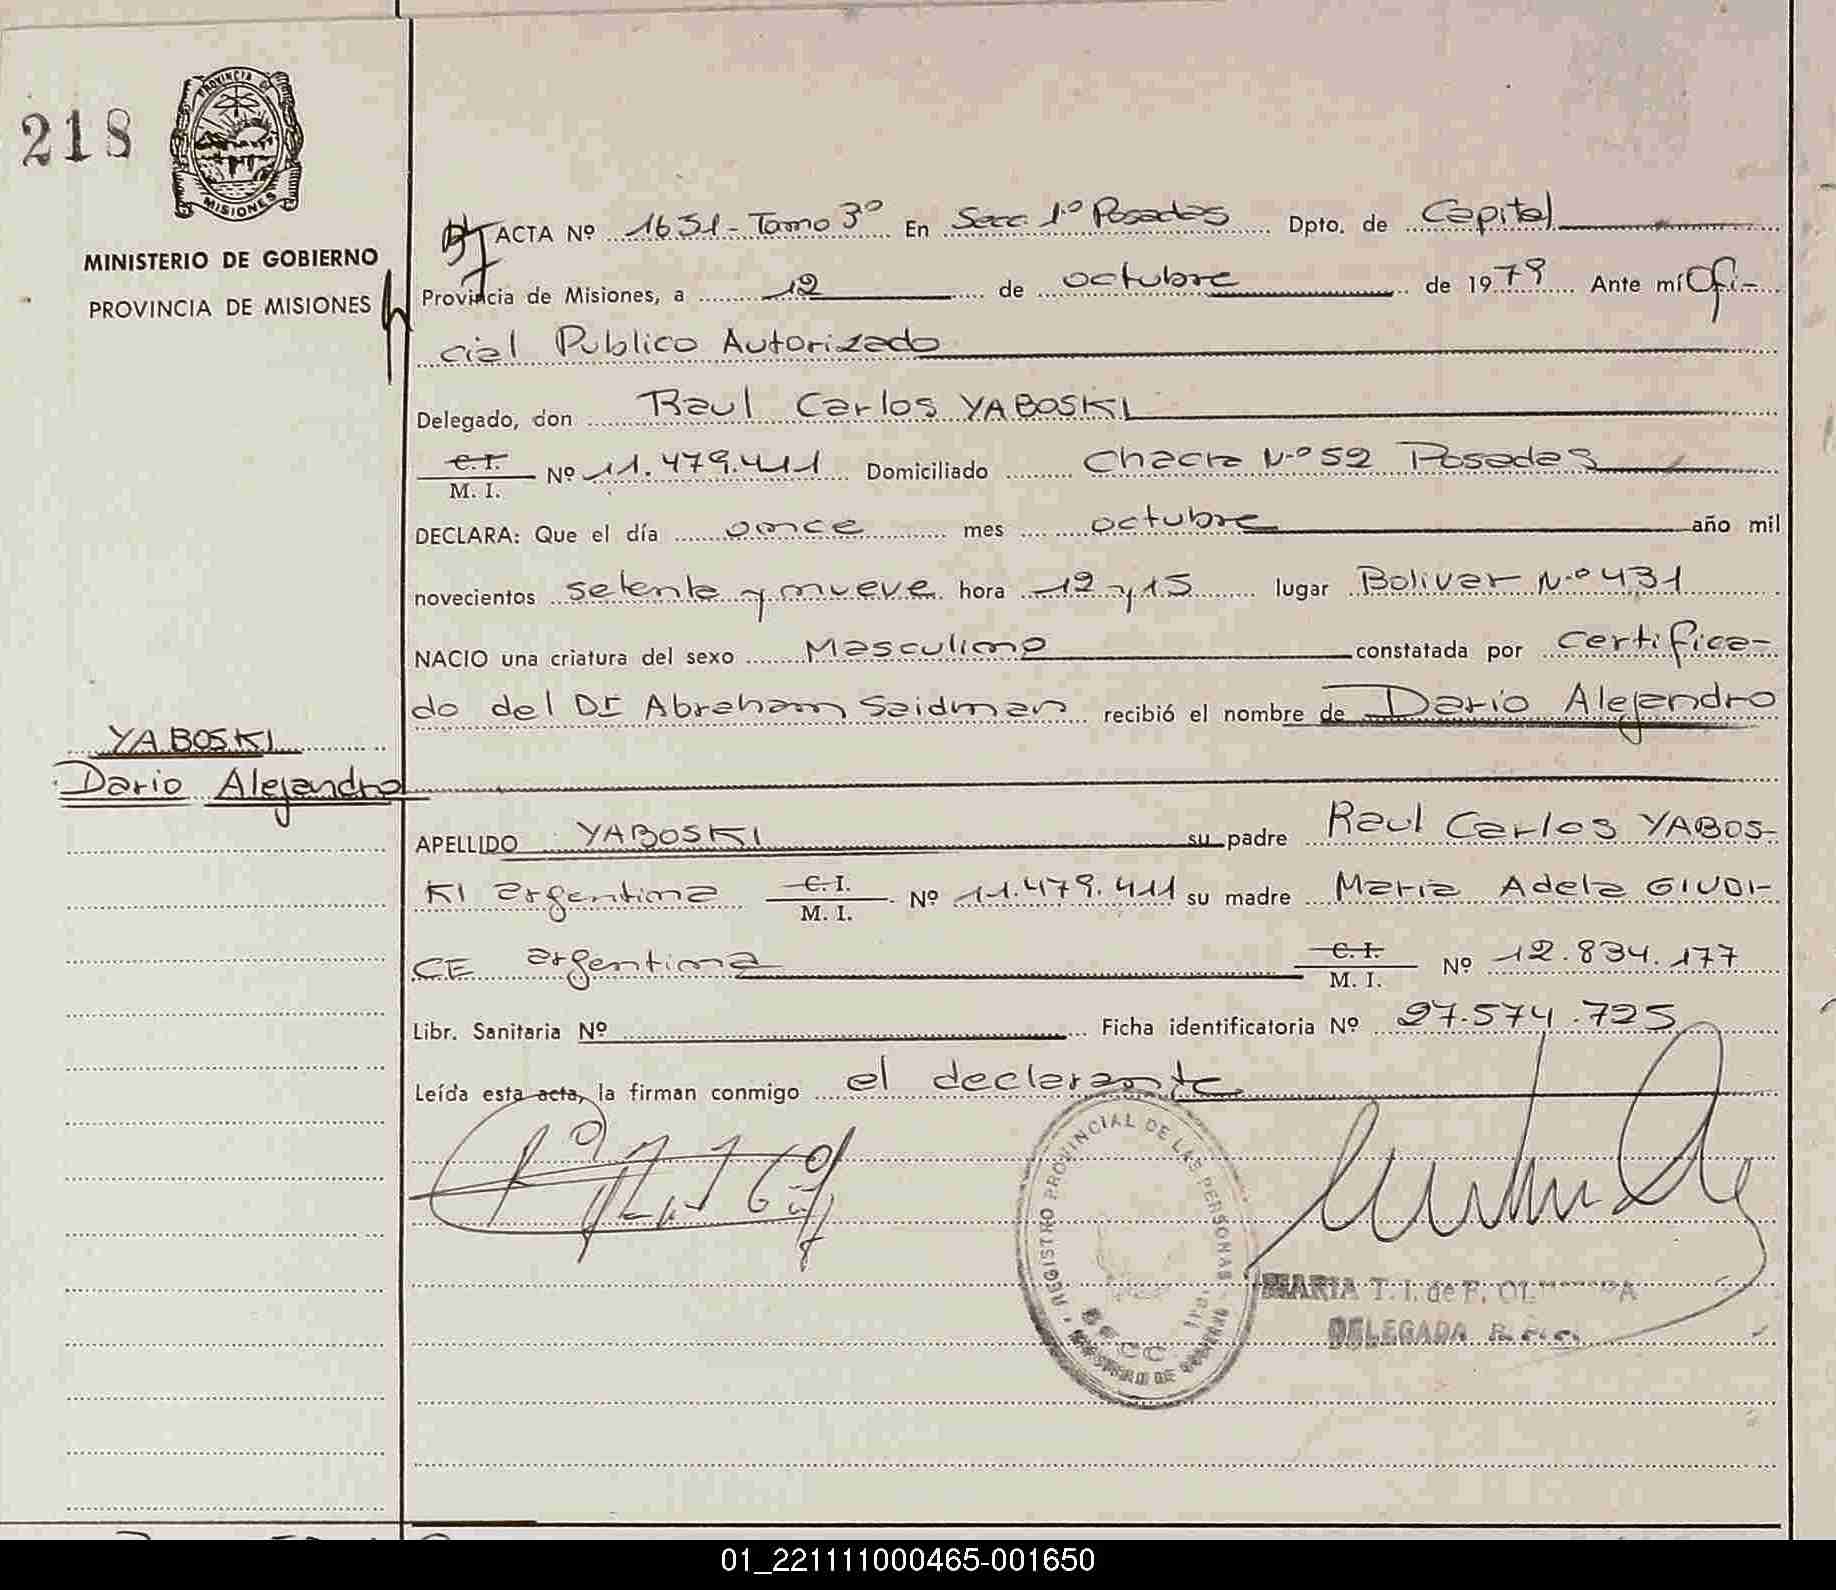 218
PROVINCIA DE
MISIONES
MINISTERIO DE GOBIERNO
PROVINCIA DE MISIONES
YABOSKI
Dario Alejandro
ACTA Nº 1631 - Tomo 3º En Secc 1º Posadas Dpto. de Capital
Provincia de Misiones, a 12 de octubre de 1979 Ante mí Ofi-
cial Publico Autorizado
Delegado, don Raul Carlos YABOSKI
C. I.
M. I. Nº 11.479.411 Domiciliado Chacra Nº 52 Posadas
DECLARA: Que el día once mes octubre año mil
novecientos setenta y nueve hora 12 y 15 lugar Bolivar Nº 431
NACIO una criatura del sexo Masculino constatada por certifica-
do del Dr Abraham Saidman recibió el nombre de Dario Alejandro
APELLIDO YABOSKI su padre Raul Carlos YABOS-
KI argentina C. I. M. I. Nº 11.479.411 su madre Maria Adela GIUDI-
CE argentina C. I. M. I. Nº 12.834.177
Libr. Sanitaria Nº Ficha identificatoria Nº 27.574.725
Leída esta acta, la firman conmigo el declarante
REGISTRO PROVINCIAL DE LAS PERSONAS
SECC.
MINISTERIO DE GOBIERNO
MARIA T. I. de F.
DELEGADA
01_221111000465-001650